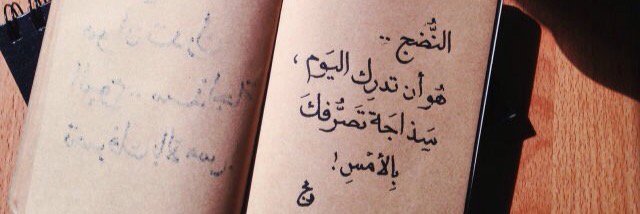 النُّضج ..
هُو أن تدرِك اليَوم ،
سَذاجَة تَصَرُّفكَ
بِالأمْسِ !